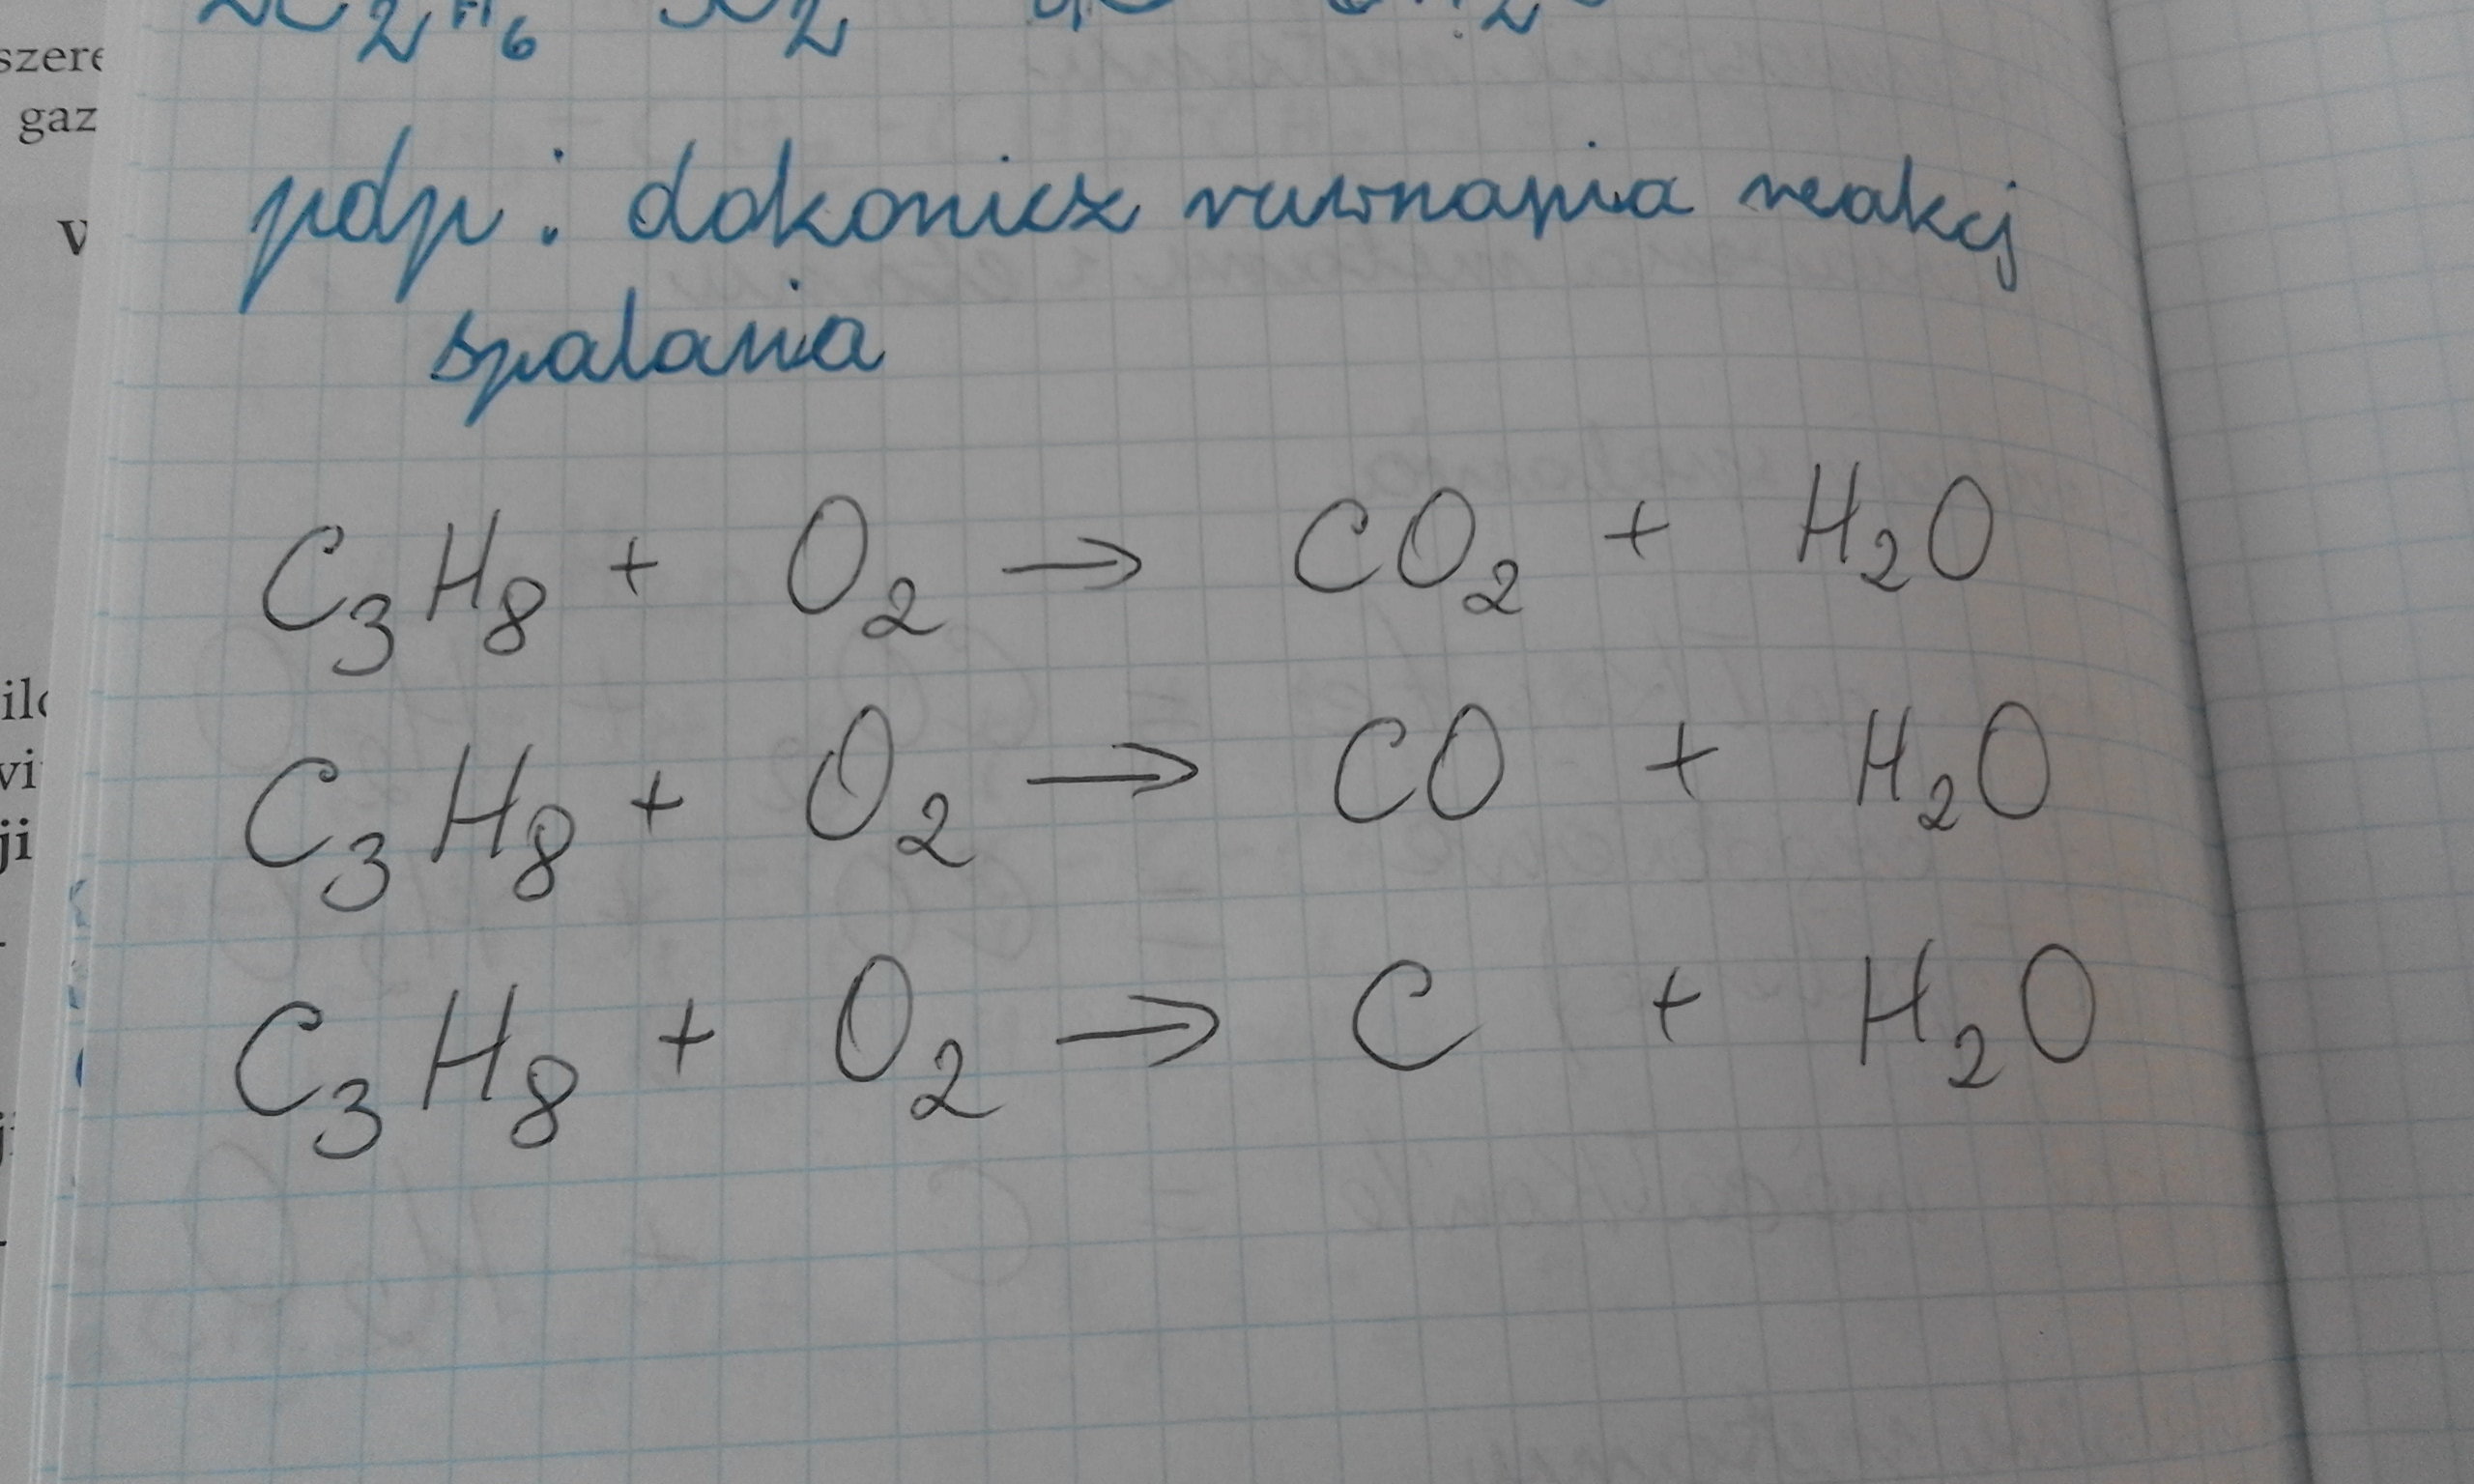 szere
gaz
pdp: dokonicz ruwnania reakcj
spalania
C₃H₈ + O₂ → CO₂ + H₂O
C₃H₈ + O₂ → CO + H₂O
C₃H₈ + O₂ → C + H₂O
ji